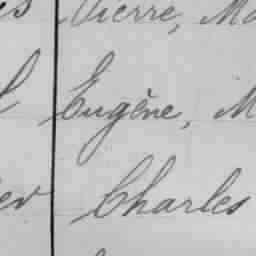 Pierre, Ma
Eugène, M
Charles